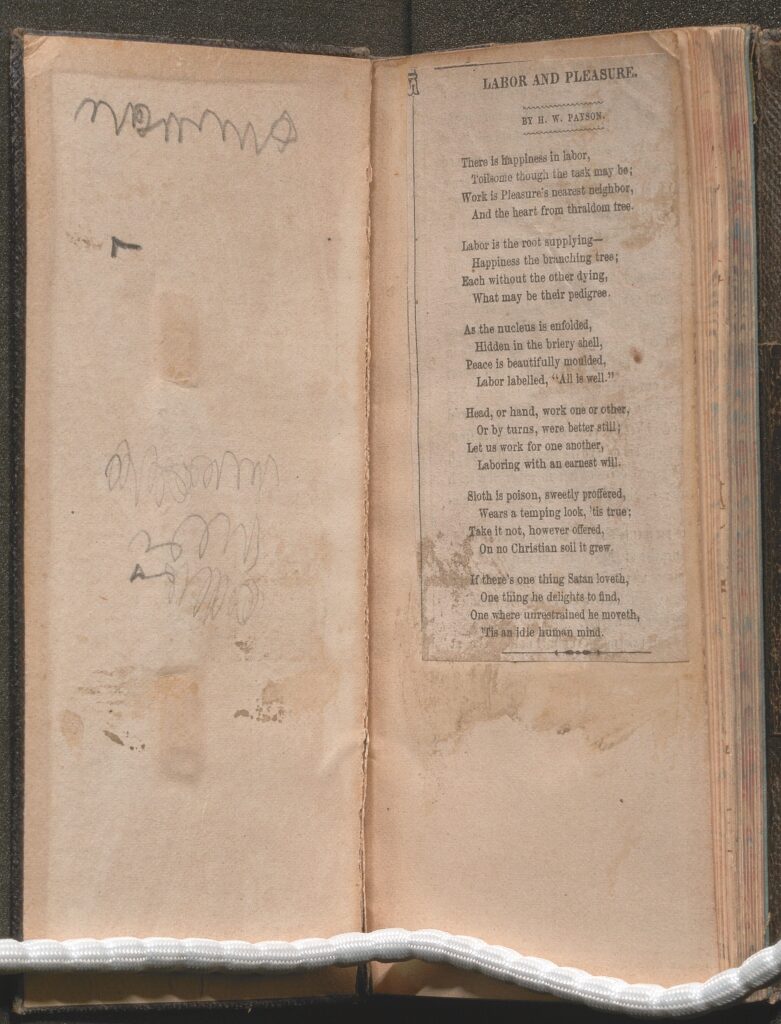 LABOR AND PLEASURE.
BY H. W. PAYSON.
There is Happiness in labor,
Toilsome though the task may be;
Work is Pleasure's nearest neighbor,
And the heart from thraldom free.
Labor is the root supplying—
Happiness the branching tree;
Each without the other dying,
What may be their pedigree.
As the nucleus is enfolded,
Hidden in the briery shell,
Peace is beautifully moulded,
Labor labelled, "All is well."
Head, or hand, work one or other,
Or by turns, were better still;
Let us work for one another,
Laboring with an earnest will.
Sloth is poison, sweetly proffered,
Wears a temping look, 'tis true;
Take it not, however offered,
On no Christian soil it grew.
If there's one thing Satan loveth,
One thing he delights to find,
One where unrestrained he moveth,
'Tis an idle human mind.